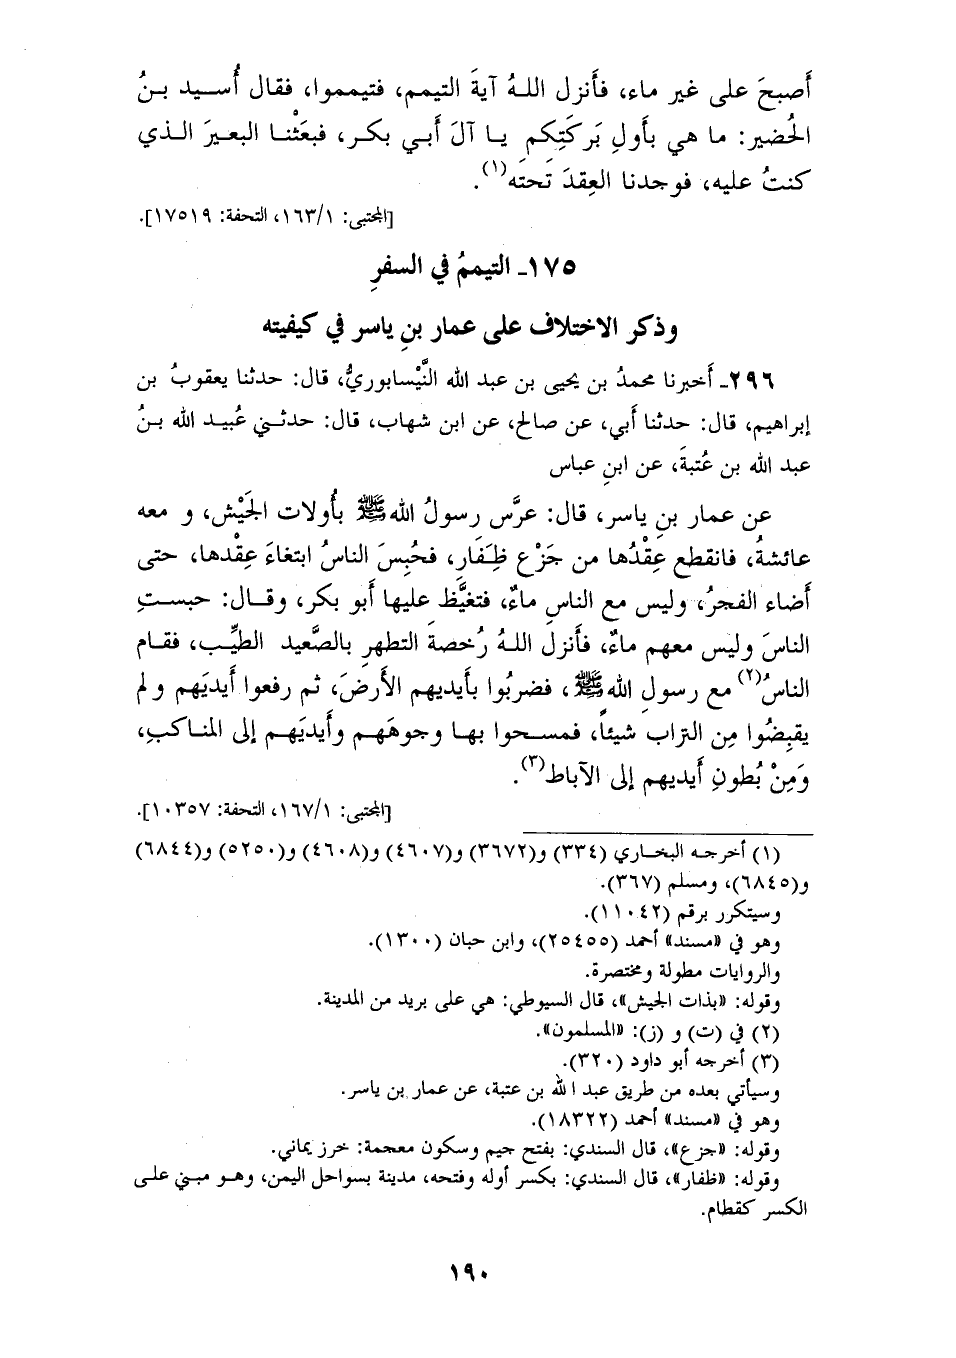 أَصبحَ على غير ماء، فأَنزل اللهُ آيةَ التيمم، فتيمموا، فقال أُسيد بنُ
الحُضير: ما هي بأَولِ بَرَكَتِكم يا آلَ أَبي بكر، فبعَثْنا البعيرَ الذي
كنتُ عليه، فوجدنا العِقدَ تَحتَه(١).
[المجتبى: ١٦٣/١، التحفة: ١٧٥١٩].
١٧٥ـ التيممُ في السفرِ
وذكر الاختلاف على عمار بنِ ياسر في كيفيته
٢٩٦ـ أَخبرنا محمدُ بن يحيى بن عبد الله النَّيسابوريُّ، قال: حدثنا يعقوبُ بن
إبراهيم، قال: حدثنا أَبي، عن صالح، عن ابن شهاب، قال: حدثني عُبيد الله بنُ
عبد الله بن عُتبةَ، عن ابنِ عباس
عن عمار بنِ ياسر، قال: عرَّس رسولُ الله ﷺ بأُولات الجَيْش، و معه
عائشةُ، فانقطع عِقْدُها من جَزْع ظِفَارِ، فحُبِسَ الناسُ ابتغاءَ عِقْدها، حتى
أَضاء الفجرُ، وليس مع الناسِ ماءٌ، فتغيَّظ عليها أَبو بكر، وقال: حبستِ
الناسَ وليس معهم ماءٌ، فأَنزل اللهُ رُخصةَ التطهرِ بالصَّعيد الطيِّب، فقام
الناسُ(٢) مع رسولِ الله ﷺ، فضربُوا بأَيديهم الأَرضَ، ثم رفعوا أَيديَهم ولم
يقبِضُوا مِن التراب شيئاً، فمسحوا بها وجوهَهم وأَيديَهم إلى المناكبِ،
وَمِنْ بُطونِ أَيديهم إلى الآباط(٣).
[المجتبى: ١٦٧/١، التحفة: ١٠٣٥٧].
(١) أخرجه البخاري (٣٣٤) و(٣٦٧٢) و(٤٦٠٧) و(٤٦٠٨) و(٥٢٥٠) و(٦٨٤٤)
و(٦٨٤٥)، ومسلم (٣٦٧).
وسيتكرر برقم (١١٠٤٢).
وهو في «مسند» أحمد (٢٥٤٥٥)، وابن حبان (١٣٠٠).
والروايات مطولة ومختصرة.
وقوله: «بذات الجيش»، قال السيوطي: هي على بريد من المدينة.
(٢) في (ت) و (ز): «المسلمون».
(٣) أخرجه أبو داود (٣٢٠).
وسيأتي بعده من طريق عبد الله بن عتبة، عن عمار بن ياسر.
وهو في «مسند» أحمد (١٨٣٢٢).
وقوله: «جزع»، قال السندي: بفتح جيم وسكون معجمة: خرز يماني.
وقوله: «ظفار»، قال السندي: بكسر أوله وفتحه، مدينة بسواحل اليمن، وهو مبني على
الكسر كقطام.
١٩٠